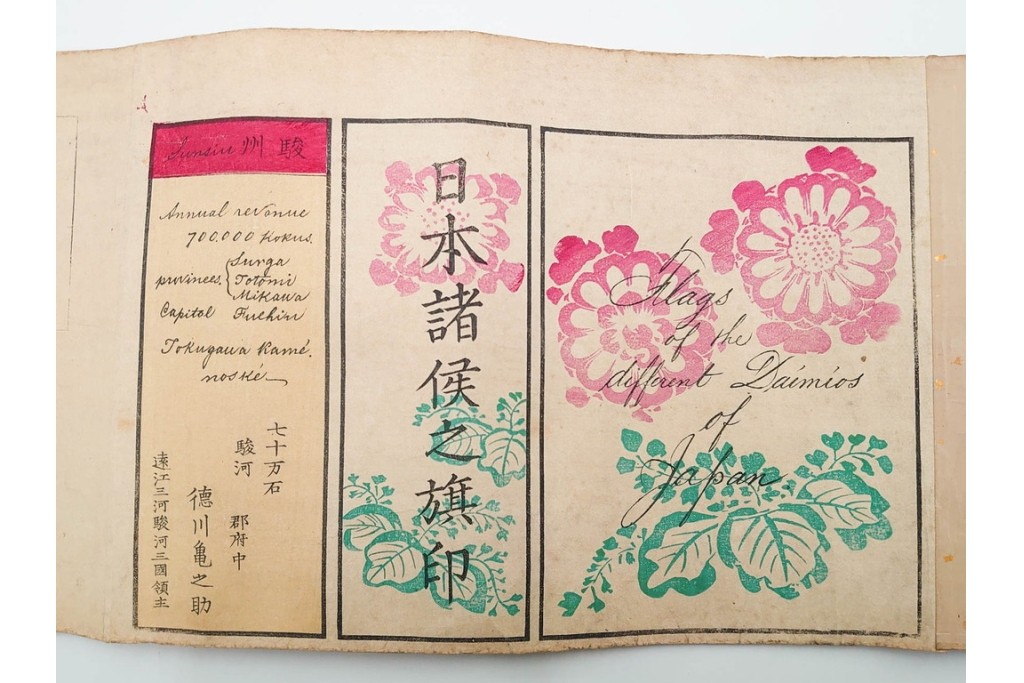 Flags
of the
different Daimios
of
Japan.
日本諸侯之旗印
駿州
Sunsiu
Annual revenue
700.000 Kokus.
provinces. { Surga
Totomi
Mikawa
Capitol Fuchiu
Tokugawa Kamé.
noské
七十万石
駿河 郡府中
德川亀之助
遠江三河駿河三國領主